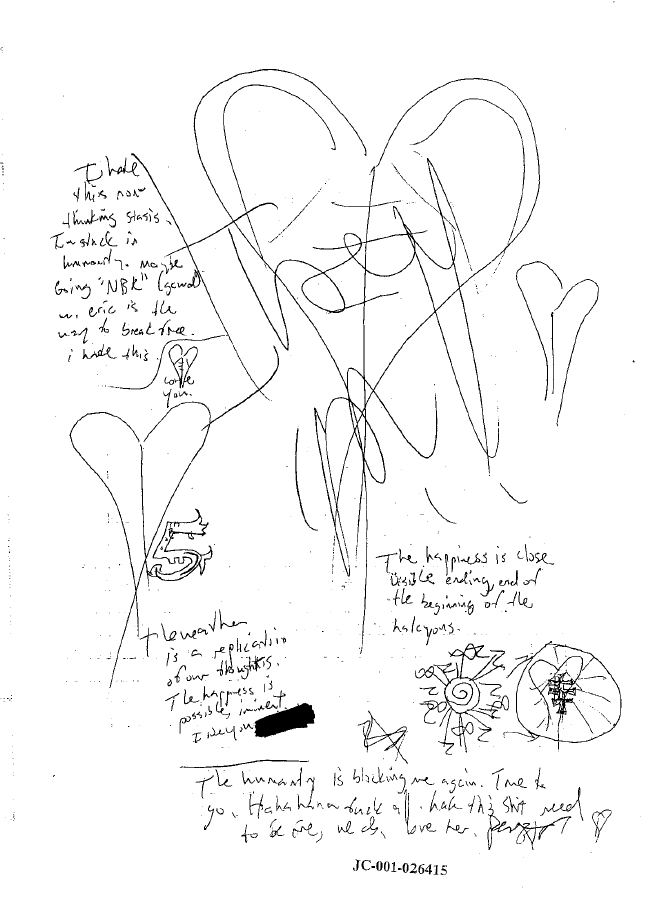 I hate
this non
thinking stasis.
I'm stuck in
humanity. maybe
Going "NBK" (gawd)
w. eric is the
way to break free.
i hate this.
love
you.
The happiness is close
visible ending, end of
the beginning of the
halcyons.
The weather
is a replication
of our thoughts.
The happiness is
possible, iminent
I see you
The humanity is blocking me again. Time to
go. Hahahaha fuck all. hate this shit need
to be free, love her.
JC-001-026415